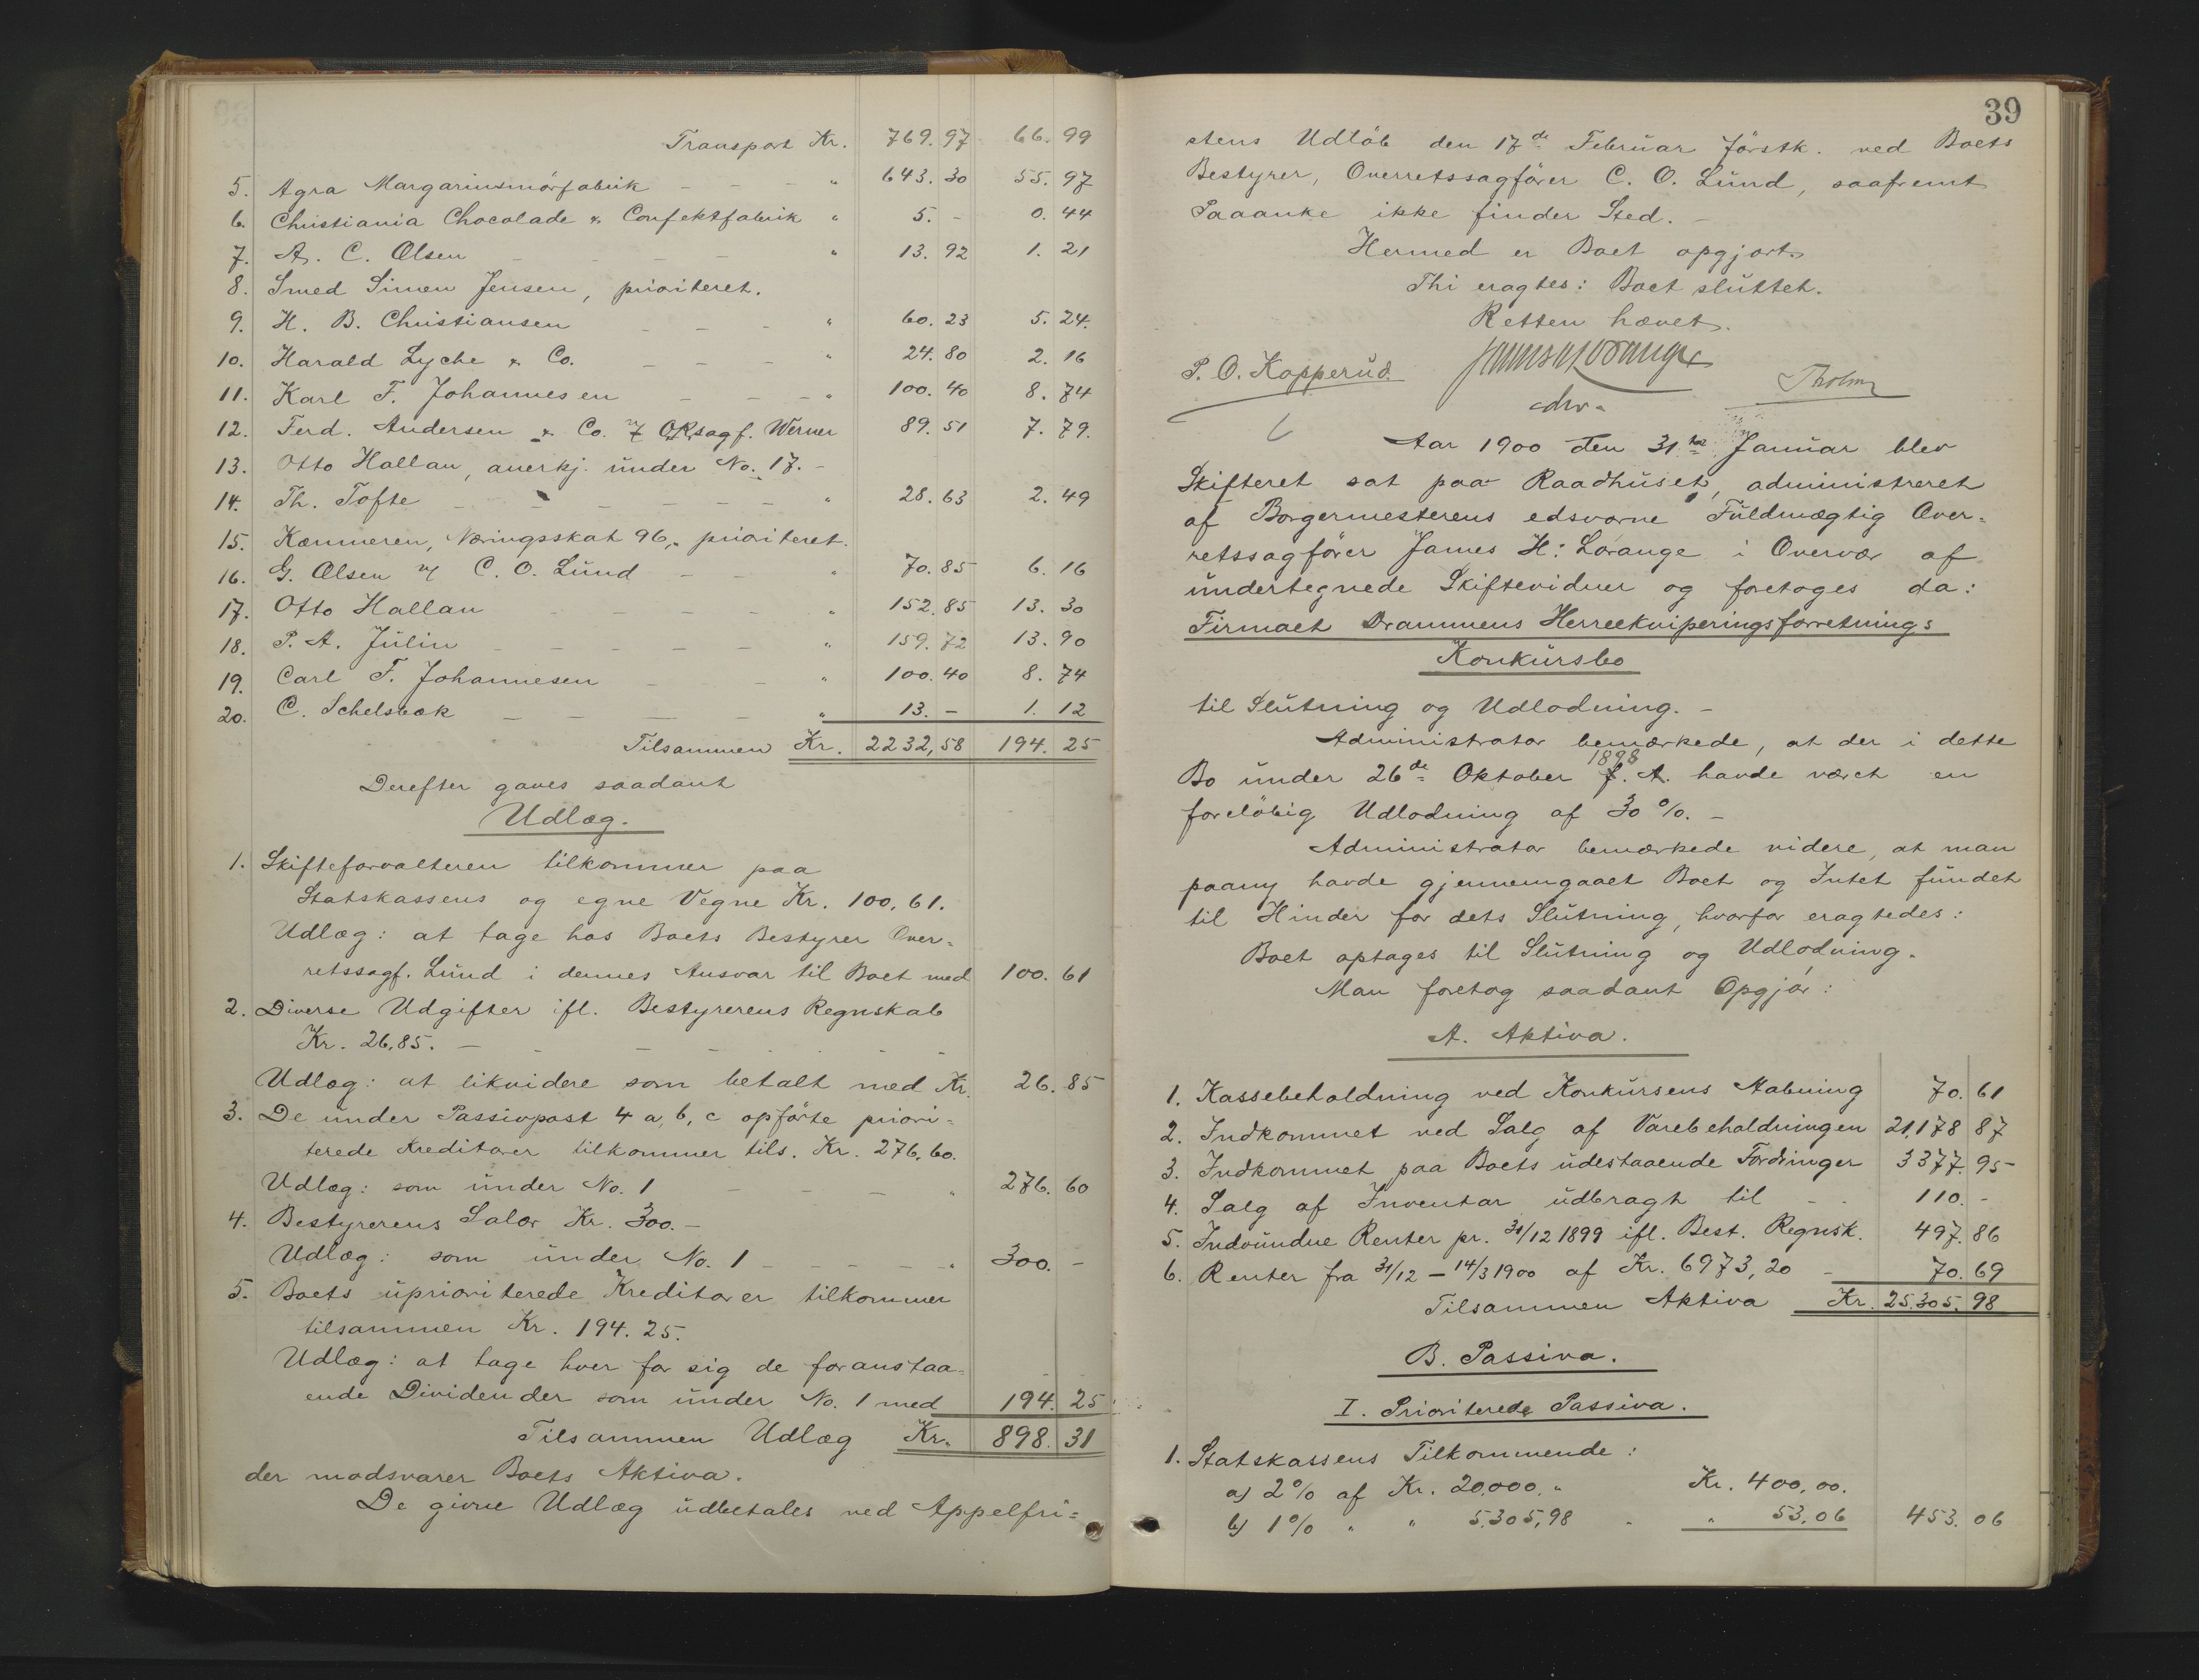 Transport Kr. 769.97 66.99
5. Agra Margarinsmörfabrik - - - " 643.30 55.97
6. Christiania Chocolade & Confektfabrik " 5.- 0.44
7. A. C. Olsen - - - - " 13.92 1.21
8. Smed Simen Jensen, prioriteret.
9. H. B. Christiansen - - - " 60.23 5.24.
10. Harald Lyche & Co. - - - " 24.80 2.16
11. Karl F. Johannesen - - - " 100.40 8.74
12. Ferd. Andersen & Co. v/ O.R.sagf. Werner 89.51 7.79.
13. Otto Hallan, anerkj. under No. 17. -
14. Th. Tofte - - - - - " 28.63 2.49
15. Kæmneren, Næringsskat 96, prioriteret.
16. G. Olsen v/ C. O. Lund - - " 70.85 6.16
17. Otto Hallan - - - - " 152.85 13.30
18. P. A. Julin - - - - - " 159.72 13.90
19. Carl F. Johannesen - - - " 100.40 8.74
20. C. Schelsbæk - - - - " 13.- 1.12
Tilsammen Kr. 2232,58 194.25
Derefter gaves saadant
Udlæg.
1. Skifteforvalteren tilkommer paa
Statskassens og egne Vegne Kr. 100,61.
Udlæg: at tage hos Boets Bestyrer Over-
retssagf. Lund i dennes Ansvar til Boet med 100.61
2. Diverse Udgifter ifl. Bestyrerens Regnskab
Kr. 26,85. - - - - - - -
Udlæg: at likvidere som betalt med Kr. 26.85
3. De under Passivpost 4 a, b, c opförte priori-
terede Kreditorer tilkommer tils. Kr. 276,60.
Udlæg: som under No. 1 - - - " 276.60
4. Bestyrerens Salær Kr. 300.-
Udlæg: som under No. 1 - - - - - " 300.-
5. Boets uprioriterede Kreditorer tilkommer
tilsammen Kr. 194.25.
Udlæg: at tage hver for sig de foranstaa-
ende Dividender som under No. 1 med 194.25
Tilsammen Udlæg Kr. 898.31
der modsvarer Boets Aktiva.
De givne Udlæg udbetales ved Appelfri-
39
stens Udlöb den 17de Februar förstk. ved Boets
Bestyrer, Overretssagförer C. O. Lund, saafremt
Paaanke ikke finder Sted. -
Hermed er Boet opgjort.
Thi eragtes: Boet sluttet.
Retten hævet.
P. O. Kopperud.
Aar 1900 den 31te Januar blev
Skifteret sat paa Raadhuset, administreret
af Borgermesterens edsvorne Fuldmægtig Over-
retssagförer James H: Lorange i Overvær af
undertegnede Skiftevidner og foretoges da:
Firmaet Drammens Herreekviperingsforretnings
Konkursbo
til Slutning og Udlodning. -
Administrator bemærkede, at der i dette
Bo under 26de Oktober 1898 f. A. havde været en
foreløbig Udlodning af 30 %. -
Administrator bemærkede videre, at man
paany havde gjennemgaaet Boet og Intet fundet
til Hinder for dets Slutning, hvorfor eragtedes:
Boet optages til Slutning og Udlodning.
Man foretog saadant Opgjör:
A. Aktiva.
1. Kassebeholdning ved Konkursens Aabning 70.61
2. Indkommet ved Salg af Varebeholdningen 21,178 87
3. Indkommet paa Boets udestaaende Fordringer 3377.95
4. Salg af Inventar udbragt til - - 110.-
5. Indvundne Renter pr. 31/12 1899 ifl. Best. Regnsk. 497.86
6. Renter fra 31/12 - 14/3 1900 af Kr. 6973,20 - 70.69
Tilsammen Aktiva Kr. 25.305.98
B. Passiva.
I. Prioriterede Passiva.
1. Statskassens Tilkommende:
a) 2% af Kr. 20,000." Kr. 400,00.
b) 1% " " 5.305,98 " " 53.06 453.06